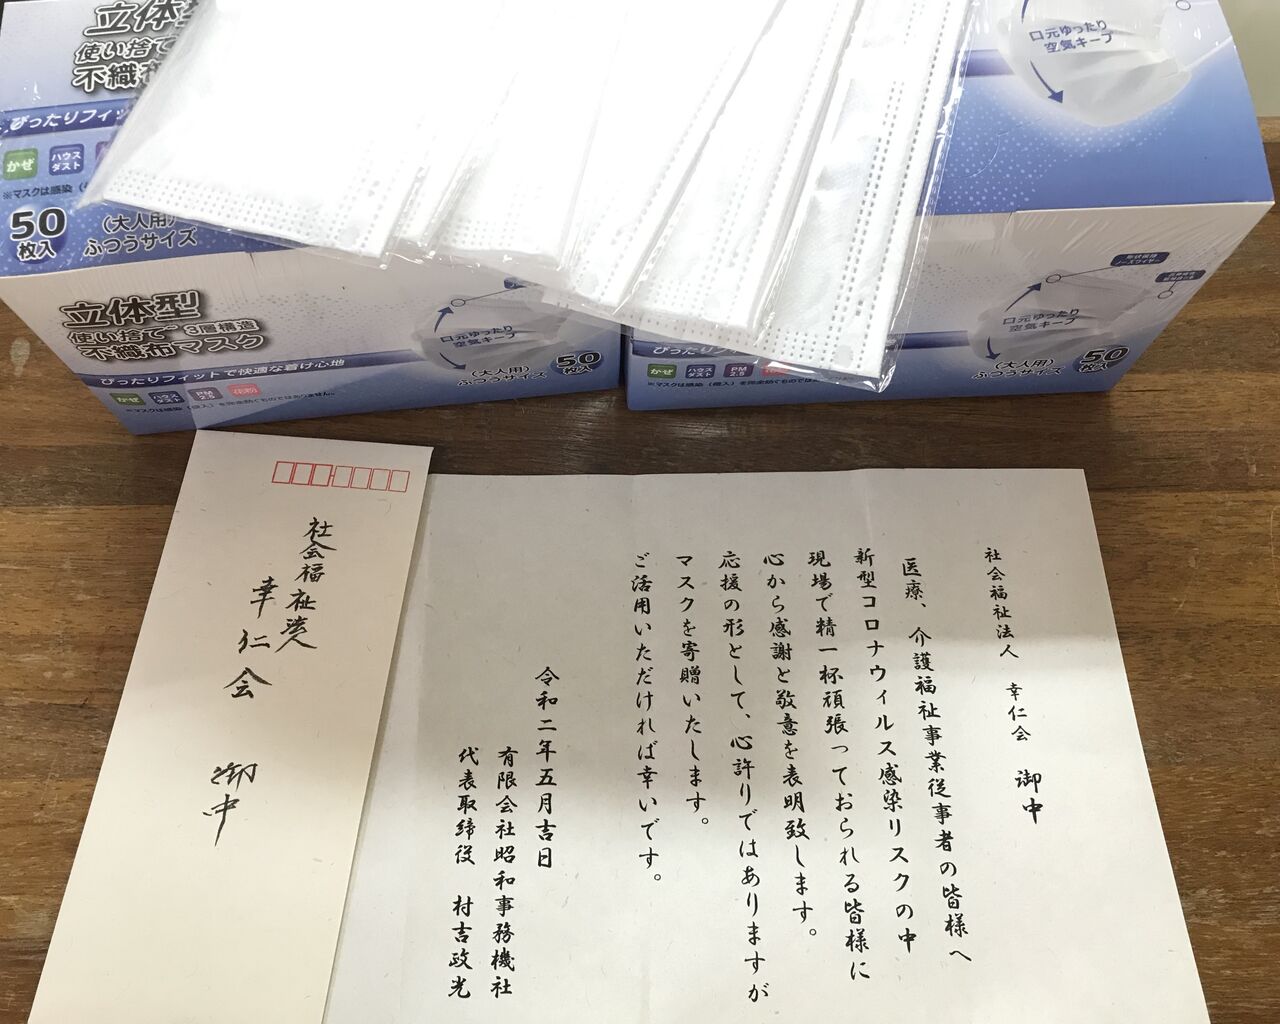 立体型
使い捨て
不織布
ぴったりフィット
かぜ
ハウスダスト
50枚入
(大人用)
ふつうサイズ
口元ゆったり
空気キープ
立体型
使い捨て 3層構造
不織布マスク
ぴったりフィットで快適な着け心地
かぜ
ハウスダスト
PM2.5
花粉
※マスクは感染(侵入)を完全防ぐものではありません。
口元ゆったり
空気キープ
(大人用)
ふつうサイズ
50枚入
口元ゆったり
空気キープ
かぜ
ハウスダスト
PM2.5
(大人用)
ふつうサイズ
50枚入
社会福祉法人
幸仁会 御中
社会福祉法人 幸仁会 御中
医療、介護福祉事業従事者の皆様へ
新型コロナウィルス感染リスクの中
現場で精一杯頑張っておられる皆様に
心から感謝と敬意を表明致します。
応援の形として、心許りではありますが
マスクを寄贈いたします。
ご活用いただければ幸いです。
令和二年五月吉日
有限会社昭和事務機社
代表取締役 村吉政光